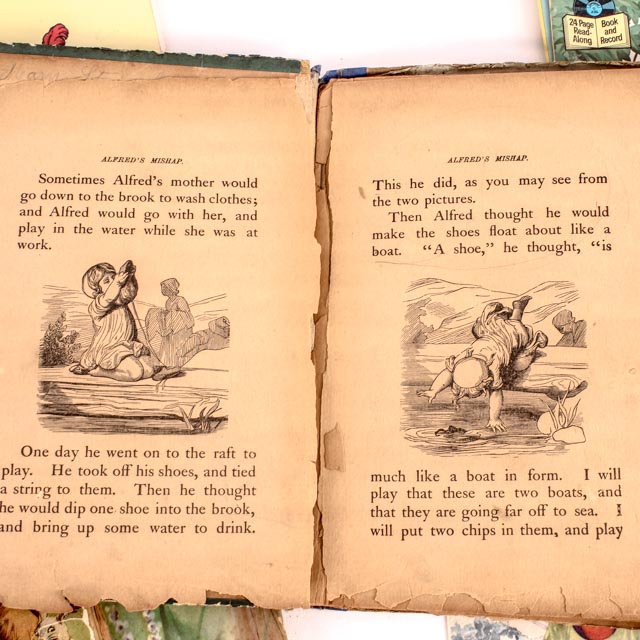 24 Page
Read-
Along
Book
and
Record
ALFRED'S MISHAP.
Sometimes Alfred's mother would
go down to the brook to wash clothes;
and Alfred would go with her, and
play in the water while she was at
work.
One day he went on to the raft to
play. He took off his shoes, and tied
a string to them. Then he thought
he would dip one shoe into the brook,
and bring up some water to drink.
ALFRED'S MISHAP.
This he did, as you may see from
the two pictures.
Then Alfred thought he would
make the shoes float about like a
boat. "A shoe," he thought, "is
much like a boat in form. I will
play that these are two boats, and
that they are going far off to sea. I
will put two chips in them, and play